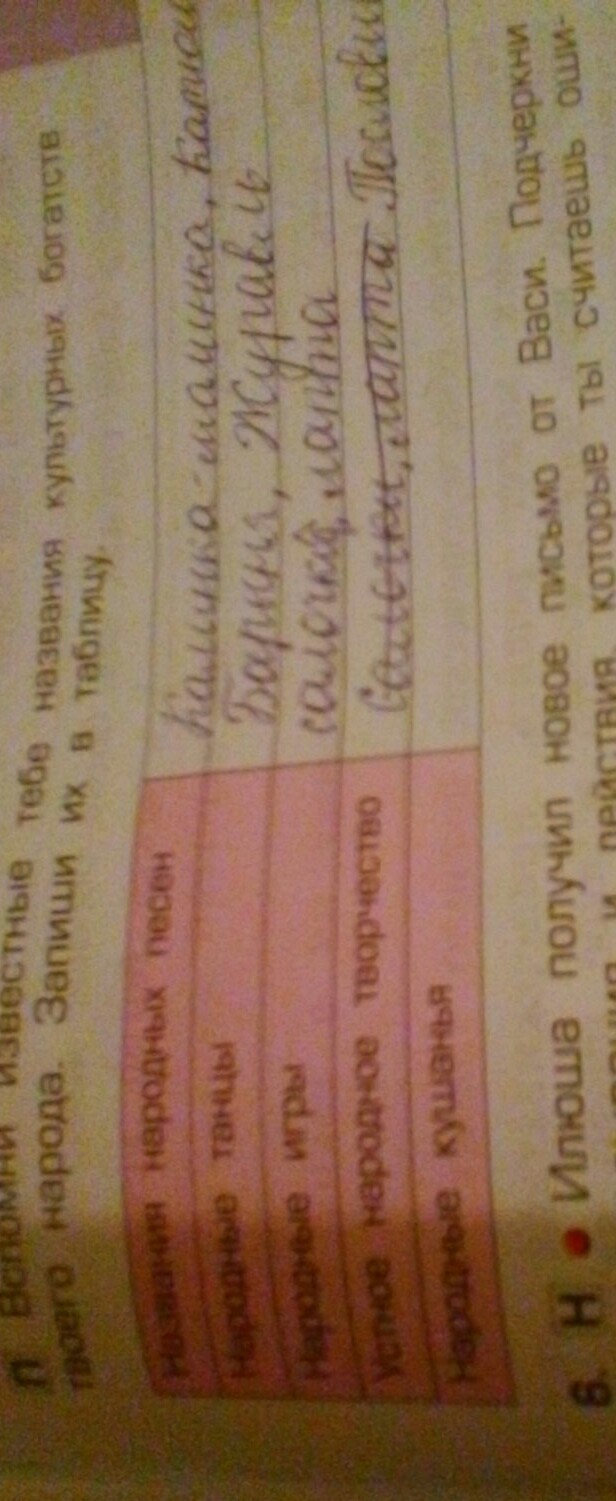 П Вспомни известные тебе названия культурных богатств
твоего народа. Запиши их в таблицу.
Названия народных песен Калинка-малинка,
Народные танцы Барыня, Журавель
Народные игры салочки, лапта
Устное народное творчество Салочки, лапта
Народные кушанья
6. Н • Илюша получил новое письмо от Васи. Подчеркни
и действия, которые ты считаешь оши-